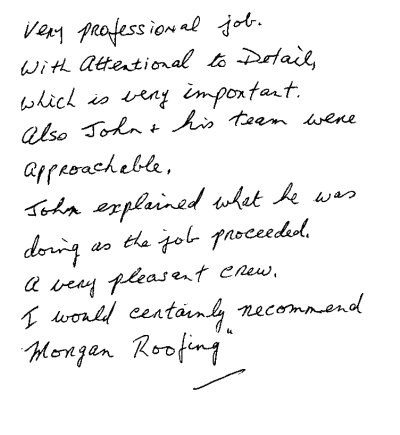 Very professional job.
With Attentional to Detail,
which is very important.
Also John + his team were
approachable.
John explained what he was
doing as the job proceeded.
A very pleasant crew.
I would certainly recommend
"Morgan Roofing"